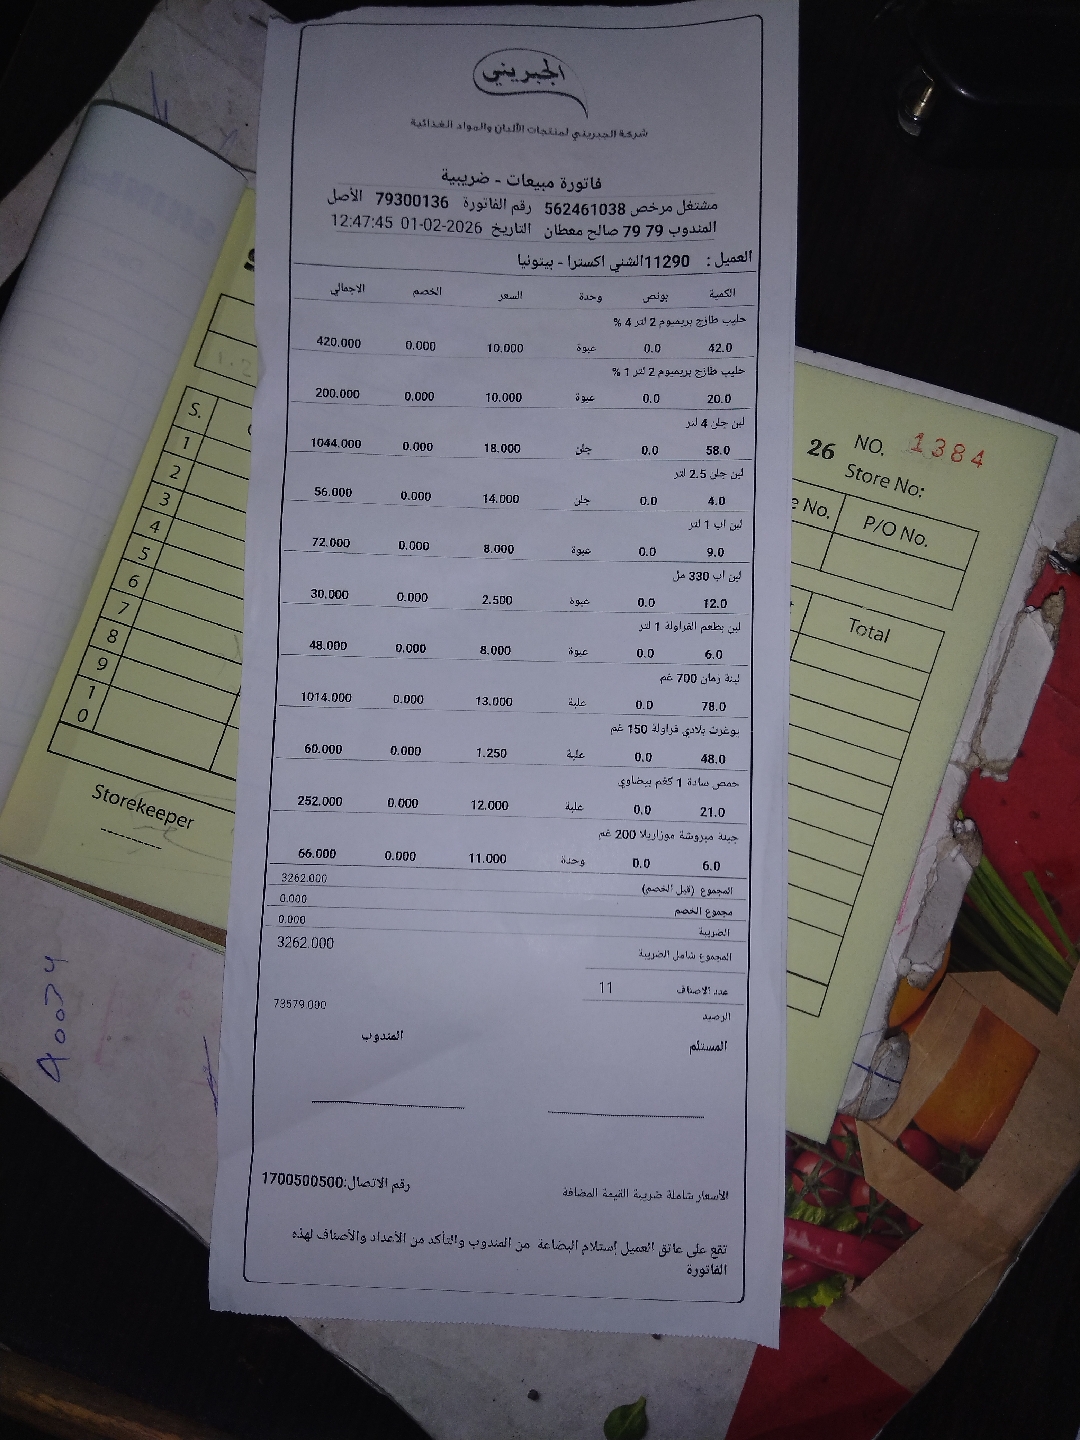 الجبريني
شركة الجبريني لمنتجات الألبان والمواد الغذائية
فاتورة مبيعات - ضريبية
مشتغل مرخص 562461038 رقم الفاتورة 79300136 الأصل
المندوب 79 79 صالح معطان التاريخ 01-02-2026 12:47:45
العميل : 11290الشني اكسترا - بيتونيا
الكمية بونص وحدة السعر الخصم الاجمالي
حليب طازج بريميوم 2 لتر 4 %
42.0 0.0 عبوة 10.000 0.000 420.000
حليب طازج بريميوم 2 لتر 1 %
20.0 0.0 عبوة 10.000 0.000 200.000
لبن جلن 4 لتر
58.0 0.0 جلن 18.000 0.000 1044.000
لبن جلن 2.5 لتر
4.0 0.0 جلن 14.000 0.000 56.000
لبن اب 1 لتر
9.0 0.0 عبوة 8.000 0.000 72.000
لبن اب 330 مل
12.0 0.0 عبوة 2.500 0.000 30.000
لبن بطعم الفراولة 1 لتر
6.0 0.0 عبوة 8.000 0.000 48.000
لبنة رمان 700 غم
78.0 0.0 علبة 13.000 0.000 1014.000
يوغرت بلادي فراولة 150 غم
48.0 0.0 علبة 1.250 0.000 60.000
حمص سادة 1 كغم بيضاوي
21.0 0.0 علبة 12.000 0.000 252.000
جبنة مبروشة موزاريلا 200 غم
6.0 0.0 وحدة 11.000 0.000 66.000
المجموع (قبل الخصم) 3262.000
مجموع الخصم 0.000
الضريبة 0.000
المجموع شامل الضريبة 3262.000
عدد الاصناف 11
الرصيد 73579.000
المستلم المندوب
الأسعار شاملة ضريبة القيمة المضافة رقم الاتصال:1700500500
تقع على عاتق العميل إستلام البضاعة من المندوب والتأكد من الأعداد والأصناف لهذه
الفاتورة
S.
1
2
3
4
5
6
7
8
9
1
0
Storekeeper
26 NO. 1384
Store No:
No. P/O No.
Total